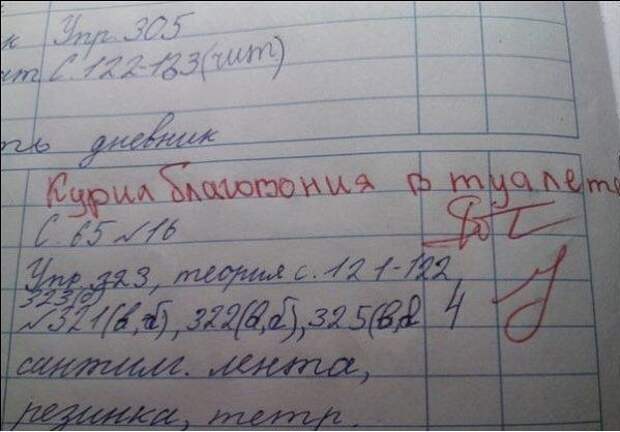 к Упр. 305
ит С. 122-123(чит.)
ть дневник
Курил благовония в туалете
С. 65 №16
Упр. 323, теория с. 121-122
323(б)
№321(в,б), 322(в,б), 325(в,б 4
сантим. лента,
резинка, тетр.